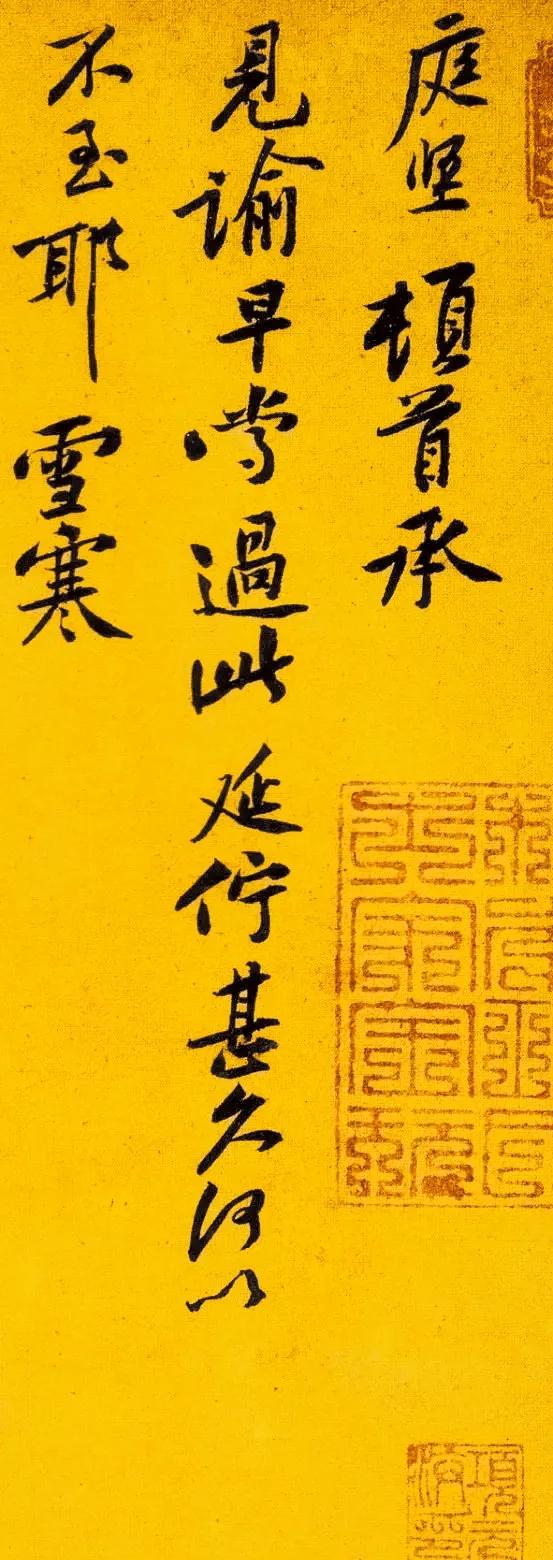 庭坚頓首承
見諭早嘗過此延佇甚久何以
不至耶雪寒